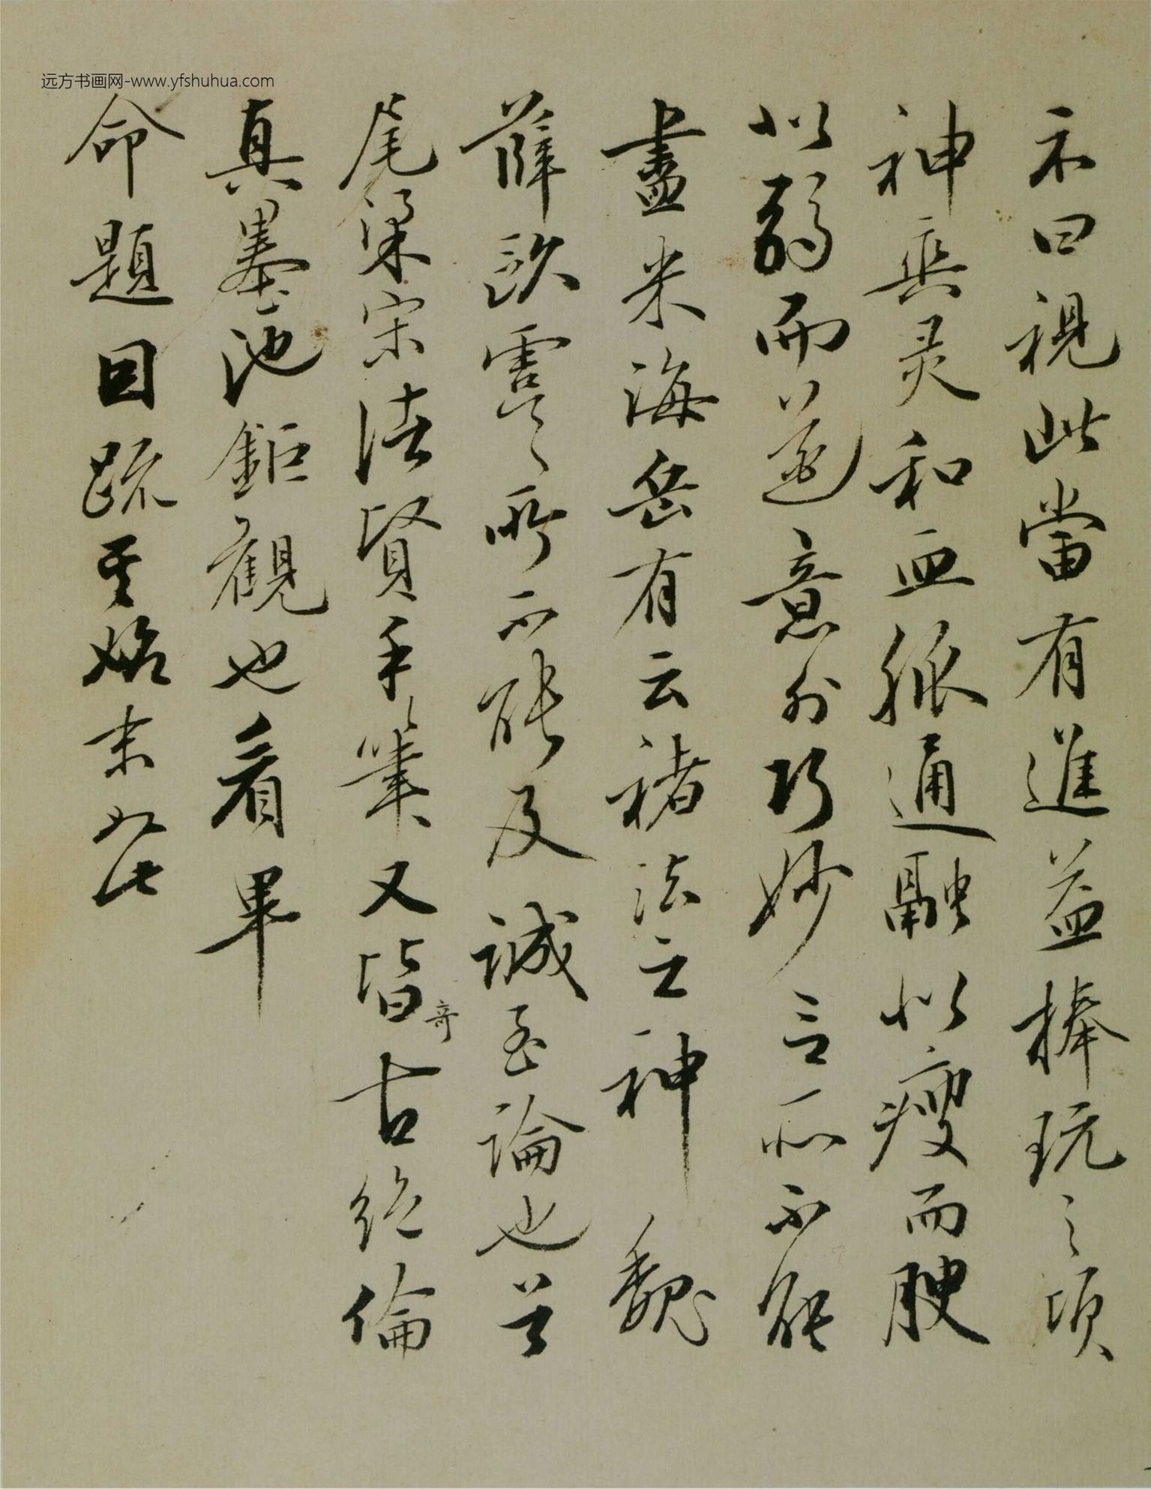 远方书画网-www.yfshuhua.com
示曰視此當有進益捧玩之頃
神與灵和血脈通融以瘦而腴
以弱而遒意外巧妙言所不能
盡米海岳有云褚法之神魏
薛歐虞所不能及誠至論也首
尾梁宋諸賢手筆又皆奇古絶倫
真墨池鉅觀也看畢
命題因疏其始末如此